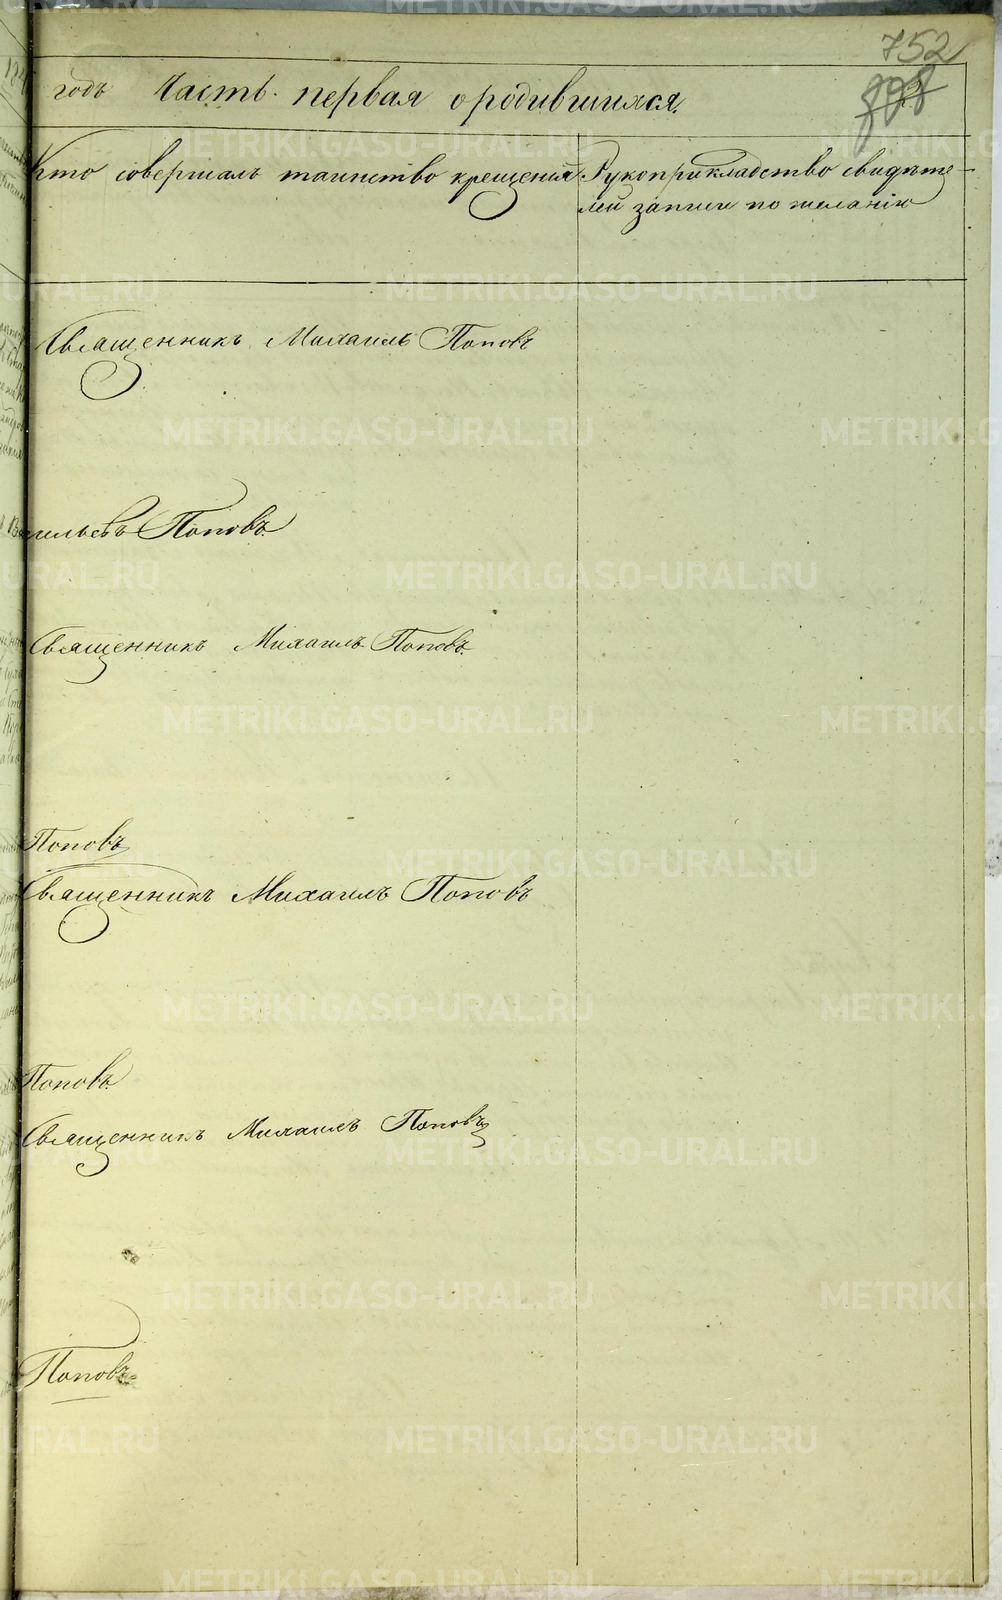 752
годъ Часть первая о родившихся.
Кто совершалъ таинство крещения
Рукоприкладство свидѣте-
лей записи по желанію
Священникъ Михаилъ Поповъ
сильевъ Поповъ
Священникъ Михаилъ Поповъ
Поповъ
Священникъ Михаилъ Поповъ
Поповъ
Священникъ Михаилъ Поповъ
Поповъ
METRIKI.GASO-URAL.RU